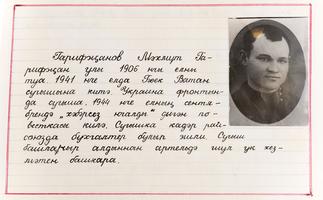 Гарифҗанов Мәхмүт Га-
рифҗан улы 1906 нчы елны
туа. 1941 нче елда Бөек Ватан
сугышына китә. Украина фронтын-
да сугыша. 1944 нче елның сентя-
брендә „хәбәрсез югалды" дигән по-
весткасы килә. Сугышка кадәр рай-
союзда бухгалтер булып эшли. Сугыш
башланыр алдыннан артельдә шул ук хез-
мәтен башкара.